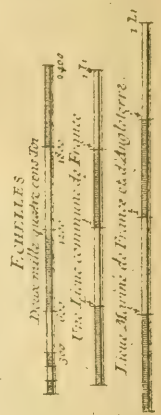 ECHELLES
Deux mille quatre cens Toi
300 600 1200 1800 2400
Une Lieue commune de France
Lieue Marine de France et d'Angleterre.